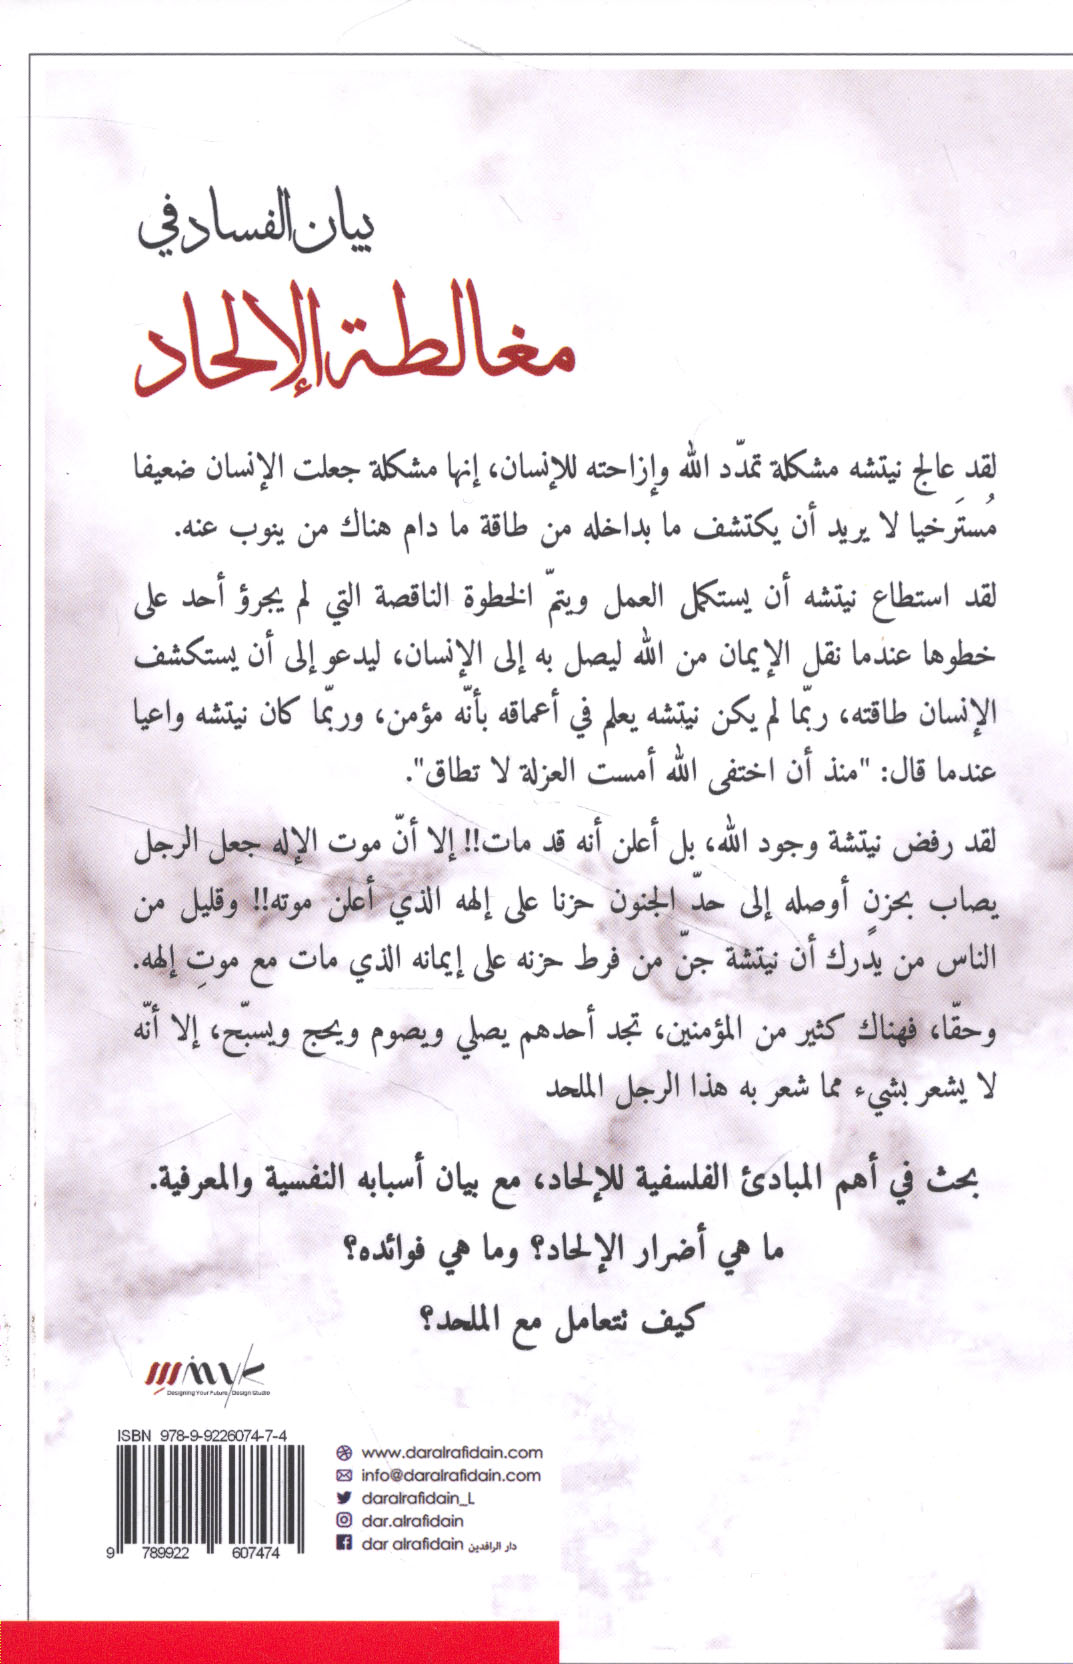 بيان الفساد في
مغالطة الإلحاد
لقد عالج نيتشه مشكلة تمدّد الله وإزاحته للإنسان، إنها مشكلة جعلت الإنسان ضعيفا
مُستَرخيا لا يريد أن يكتشف ما بداخله من طاقة ما دام هناك من ينوب عنه.
لقد استطاع نيتشه أن يستكمل العمل ويتمّ الخطوة الناقصة التي لم يجرؤ أحد على
خطوها عندما نقل الإيمان من الله ليصل به إلى الإنسان، ليدعو إلى أن يستكشف
الإنسان طاقته، ربّما لم يكن نيتشه يعلم في أعماقه بأنّه مؤمن، وربّما كان نيتشه واعيا
عندما قال: "منذ أن اختفى الله أمست العزلة لا تطاق".
لقد رفض نيتشة وجود الله، بل أعلن أنه قد مات!! إلا أنّ موت الإله جعل الرجل
يصاب بحزنٍ أوصله إلى حدّ الجنون حزنا على إلهه الذي أعلن موته!! وقليل من
الناس من يدرك أن نيتشة جنّ من فرط حزنه على إيمانه الذي مات مع موتِ إلهه.
وحقّا، فهناك كثير من المؤمنين، تجد أحدهم يصلي ويصوم ويحج ويسبّح، إلا أنّه
لا يشعر بشيء مما شعر به هذا الرجل الملحد
بحث في أهم المبادئ الفلسفية للإلحاد، مع بيان أسبابه النفسية والمعرفية.
ما هي أضرار الإلحاد؟ وما هي فوائده؟
كيف نتعامل مع الملحد؟
Designing Your Future/Design Studio
ISBN 978-9-9226074-7-4
9 789922 607474
www.daralrafidain.com
info@daralrafidain.com
daralrafidain_L
dar.alrafidain
dar alrafidain دار الرافدين